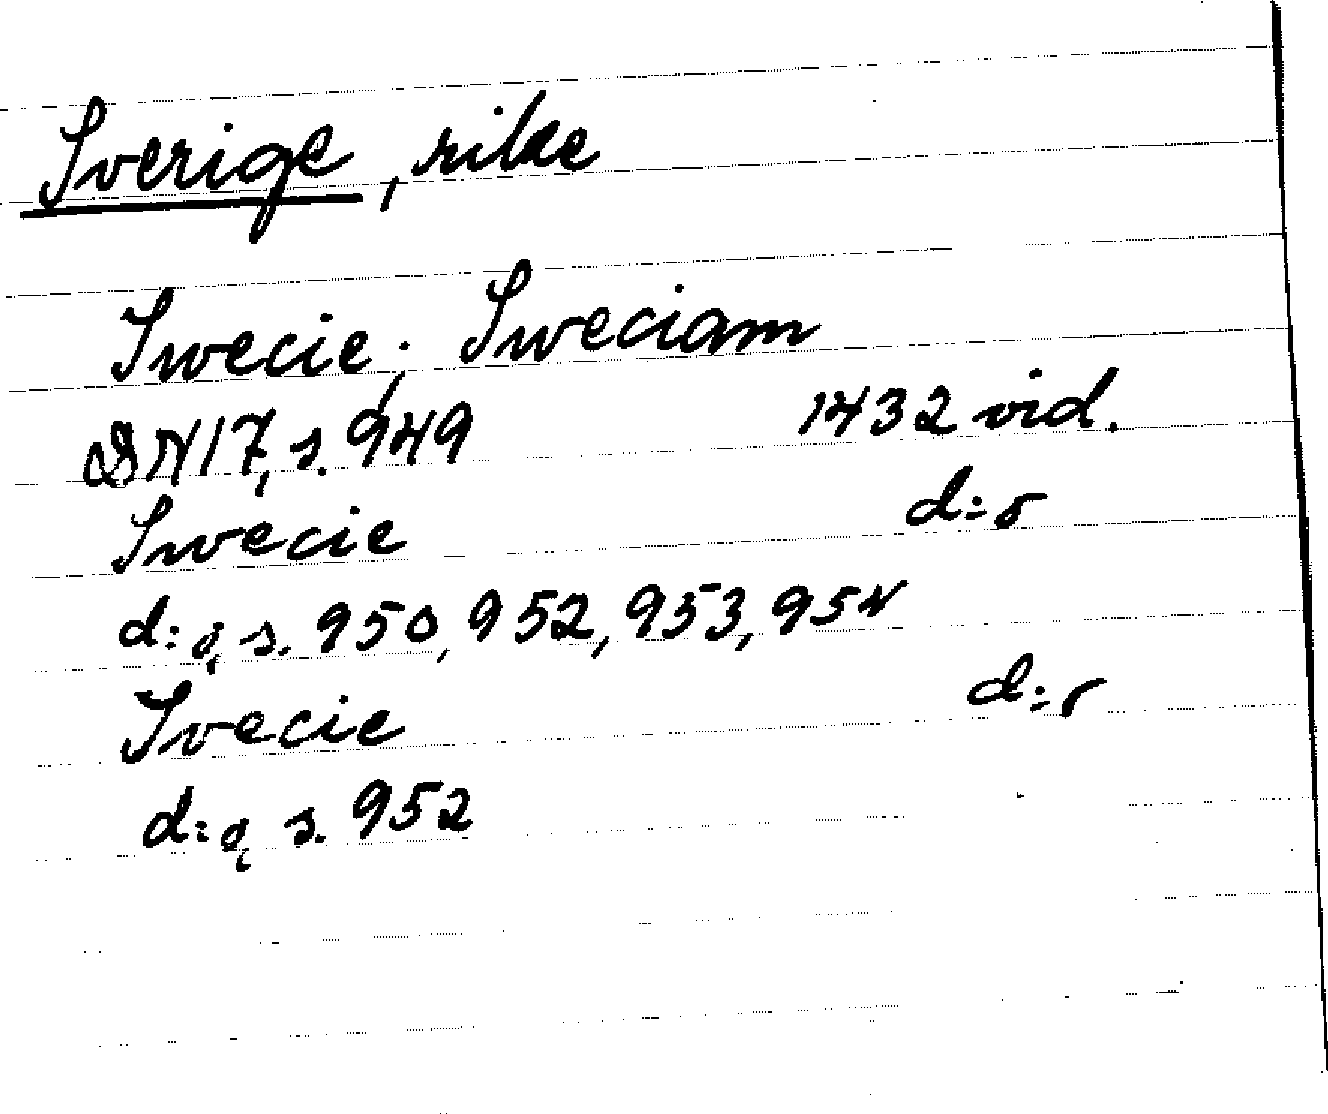 Sverige, rike
Swecie; Sweciam
DN 17, s. 949 1432 vid.
Swecie d:o
d:o, s. 950, 952, 953, 954
Svecie d:o
d:o, s. 952